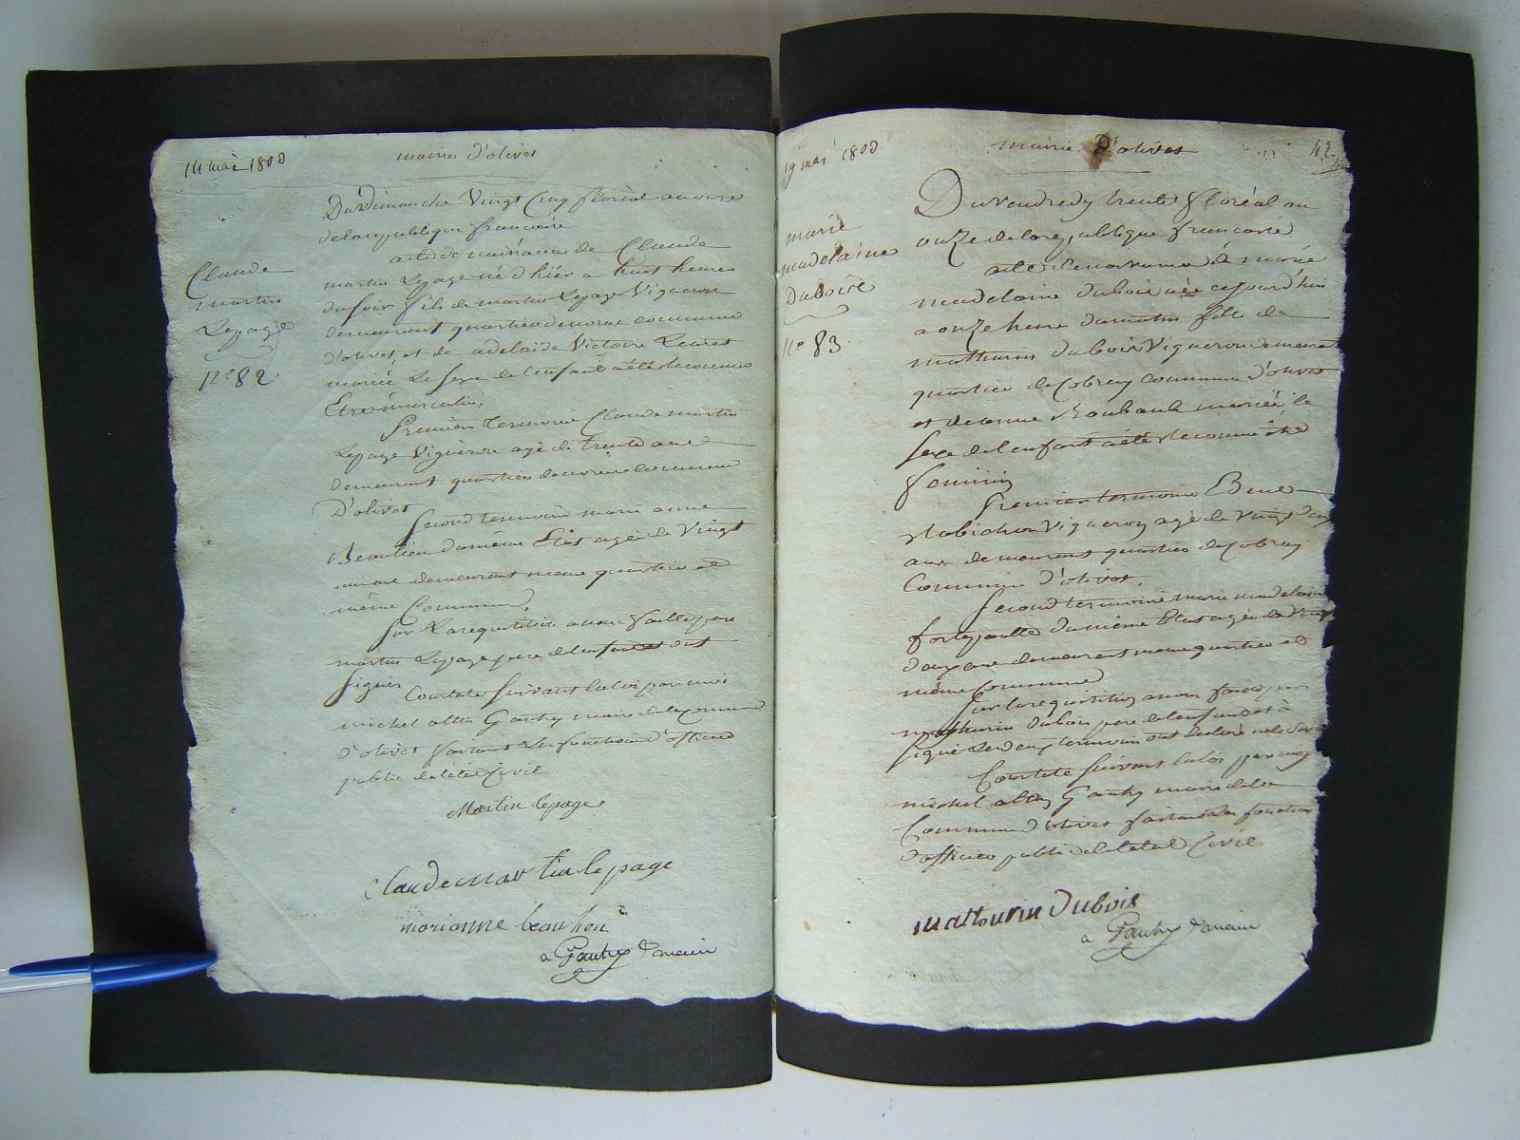 14 mai 1800
mairie d'olivet
Du Dimanche Vingt Cinq floréal an onze
de la republique francaise
acte de naissance de Claude
martin Lepage né d'hier a huit heures
du soir fils de martin Lepage Vigneron
demeurant quartier de commune
d'olivet et de adelaide Victoire
mariée Le sexe de l'enfant a été reconnu
Etre masculin
Claude
martin
Lepage
N° 82
Premier temoin Claude martin
Lepage Vigneron agé de trente ans
demeurant quartier de commune
D'olivet
second temoin marie anne
Beaulieu du même Etat agée de Vingt
ans demeurant meme quartier et
même Commune
sur La requisition a nous faitte par
martin Lepage pere de l'enfant et ont
signés
Constaté suivant la loi par moi
michel alta Gauthy maire de la Commune
d'olivet faisant les fonctions d'officier
public de l'état Civil
Martin lepage
Claude martin lepage
marianne beaulieu
a Gauthy maire
19 mai 1800
mairie d'olivet
42
marie
madelaine
Duboice
N° 83
Du Vendredy trente floréal an
onze de la republique francaise
acte de naissance de marie
madelaine duboie née cejourd'hui
a onze heure du matin fille de
mathurin duboie Vigneron demeurant
quartier de Cobray Commune d'olivet
et de anne Roubault mariée, le
sexe de l'enfant a été reconnu être
feminin
Premier temoin
Robichon Vigneron agé de Vingt
ans demeurant quartier de Cobray
Commune d'olivet,
second temoin marie madelaine
du même Etat agée de Vingt
deux ans demeurant meme quartier et
même Commune
sur la requisition a nous faitte par
mathurin duboie pere de l'enfant et a
signé Les deux temoins ont declaré ne le savoir
Constaté suivant la loi par moy
michel alta Gauthy maire de la
Commune d'olivet faisant les fonctions
d'officier public de l'état Civil
Mathurin Dubois
a Gauthy maire